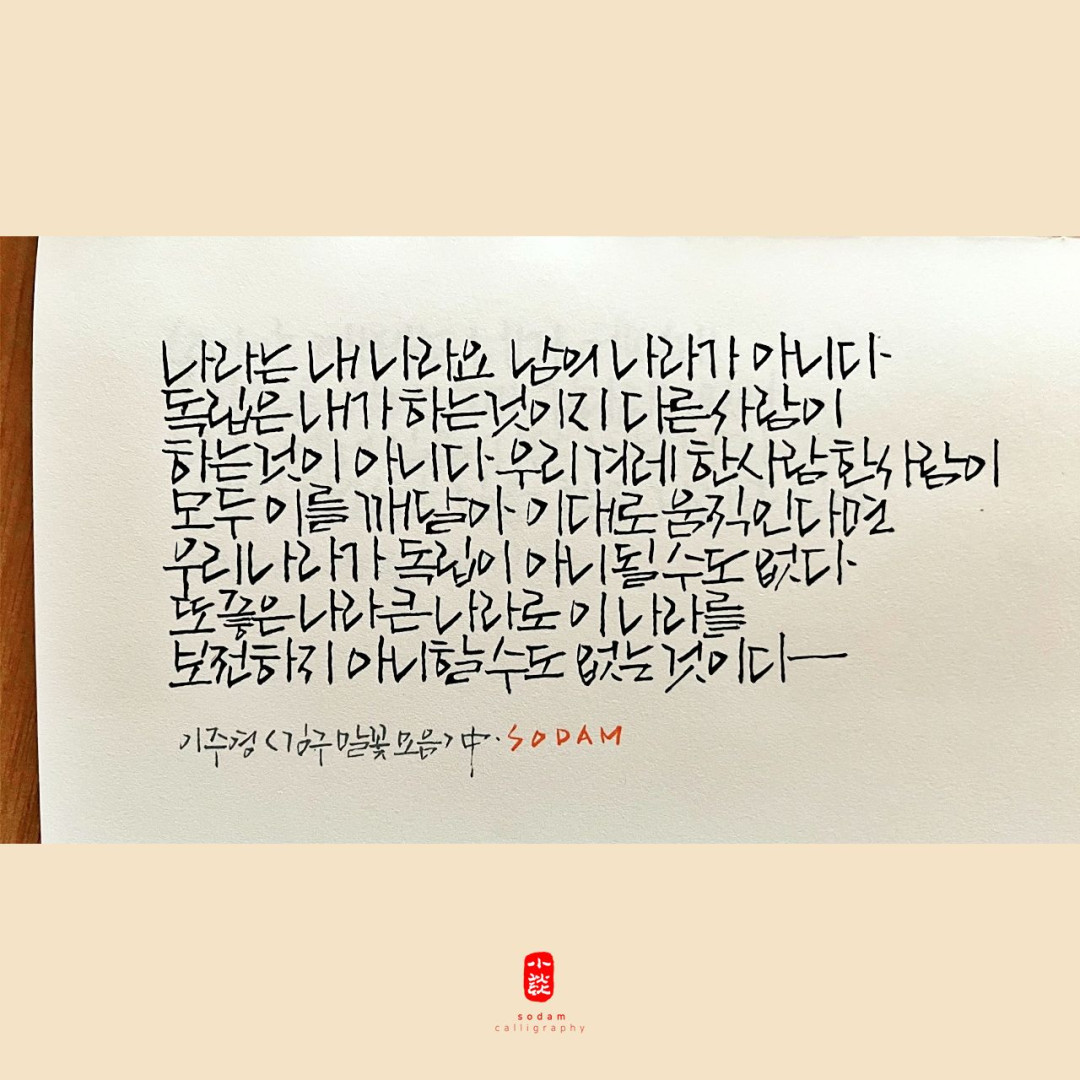 나라는 내 나라요 남의 나라가 아니다.
독립은 내가 하는것이지 다른사람이
하는것이 아니다. 우리겨레 한사람한사람이
모두 이를 깨달아. 이대로 움직인다면
우리나라가 독립이 아니될 수도 없다.
또 좋은 나라 큰 나라로 이 나라를
보전하지 아니할 수도 없는 것이다—
이주영 <김구 말꽃모음> 中. SODAM
小
談
sodam
calligraphy